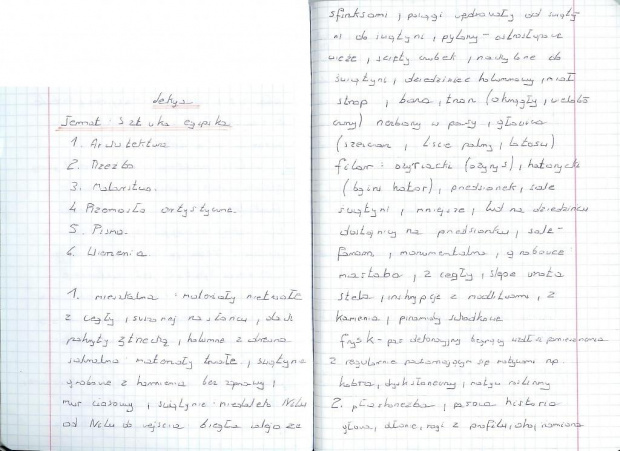 Lekcja
Temat: Sztuka egipska
1. Architektura
2. Rzeźba
3. Malarstwo.
4 Rzemiosło artystyczne.
5. Pismo.
6. Wierzenia
1. mieszkalna materiały nietrwałe
z cegły, suszonej na słońcu, dach
pokryty strzechą, kolumne z drewna
sakralna materiały trwałe, świątynie
grobowe z kamienia bez zaprawy,
mur ciosowy, świątynie niedaleko Nilu
od Nilu do wejścia biegła aleja ze
sfinksami, posągi wędrowały od świąty-
ni do świątyni, pylony - ostrosłupowe
wieże, ścięty czubek, nachylone do
świątyni, dziedziniec kolumnowy, miał
strop, baza, tron (okrągły, wielobo
czny) rzeźbiony w pasy, głowica
(szerwan, liście palmy, lotosu)
filar: ozyriacki (ozyrys), hatorycki
(bogini hator), przedsionek, sale
świątyni, mniejsze, lud na dziedzińcu
dostojnicy na przedsionku, sale-
faraon, monumentalne, grobowce
mastaba, z cegły, ślepe wrota
stela, inskrypcje z modlitwami, z
kamienia, piramidy schodkowe
fryz - pas dekoracyjny biegnący wzdłuż pomieszczenia
z regularnie powtarzającym się motywem np.
kobra, dysk słoneczny, motyw roślinny
2. płaskorzeźba, pasowa historia
głowa, dłonie, nogi z profilu, oko, ramiona